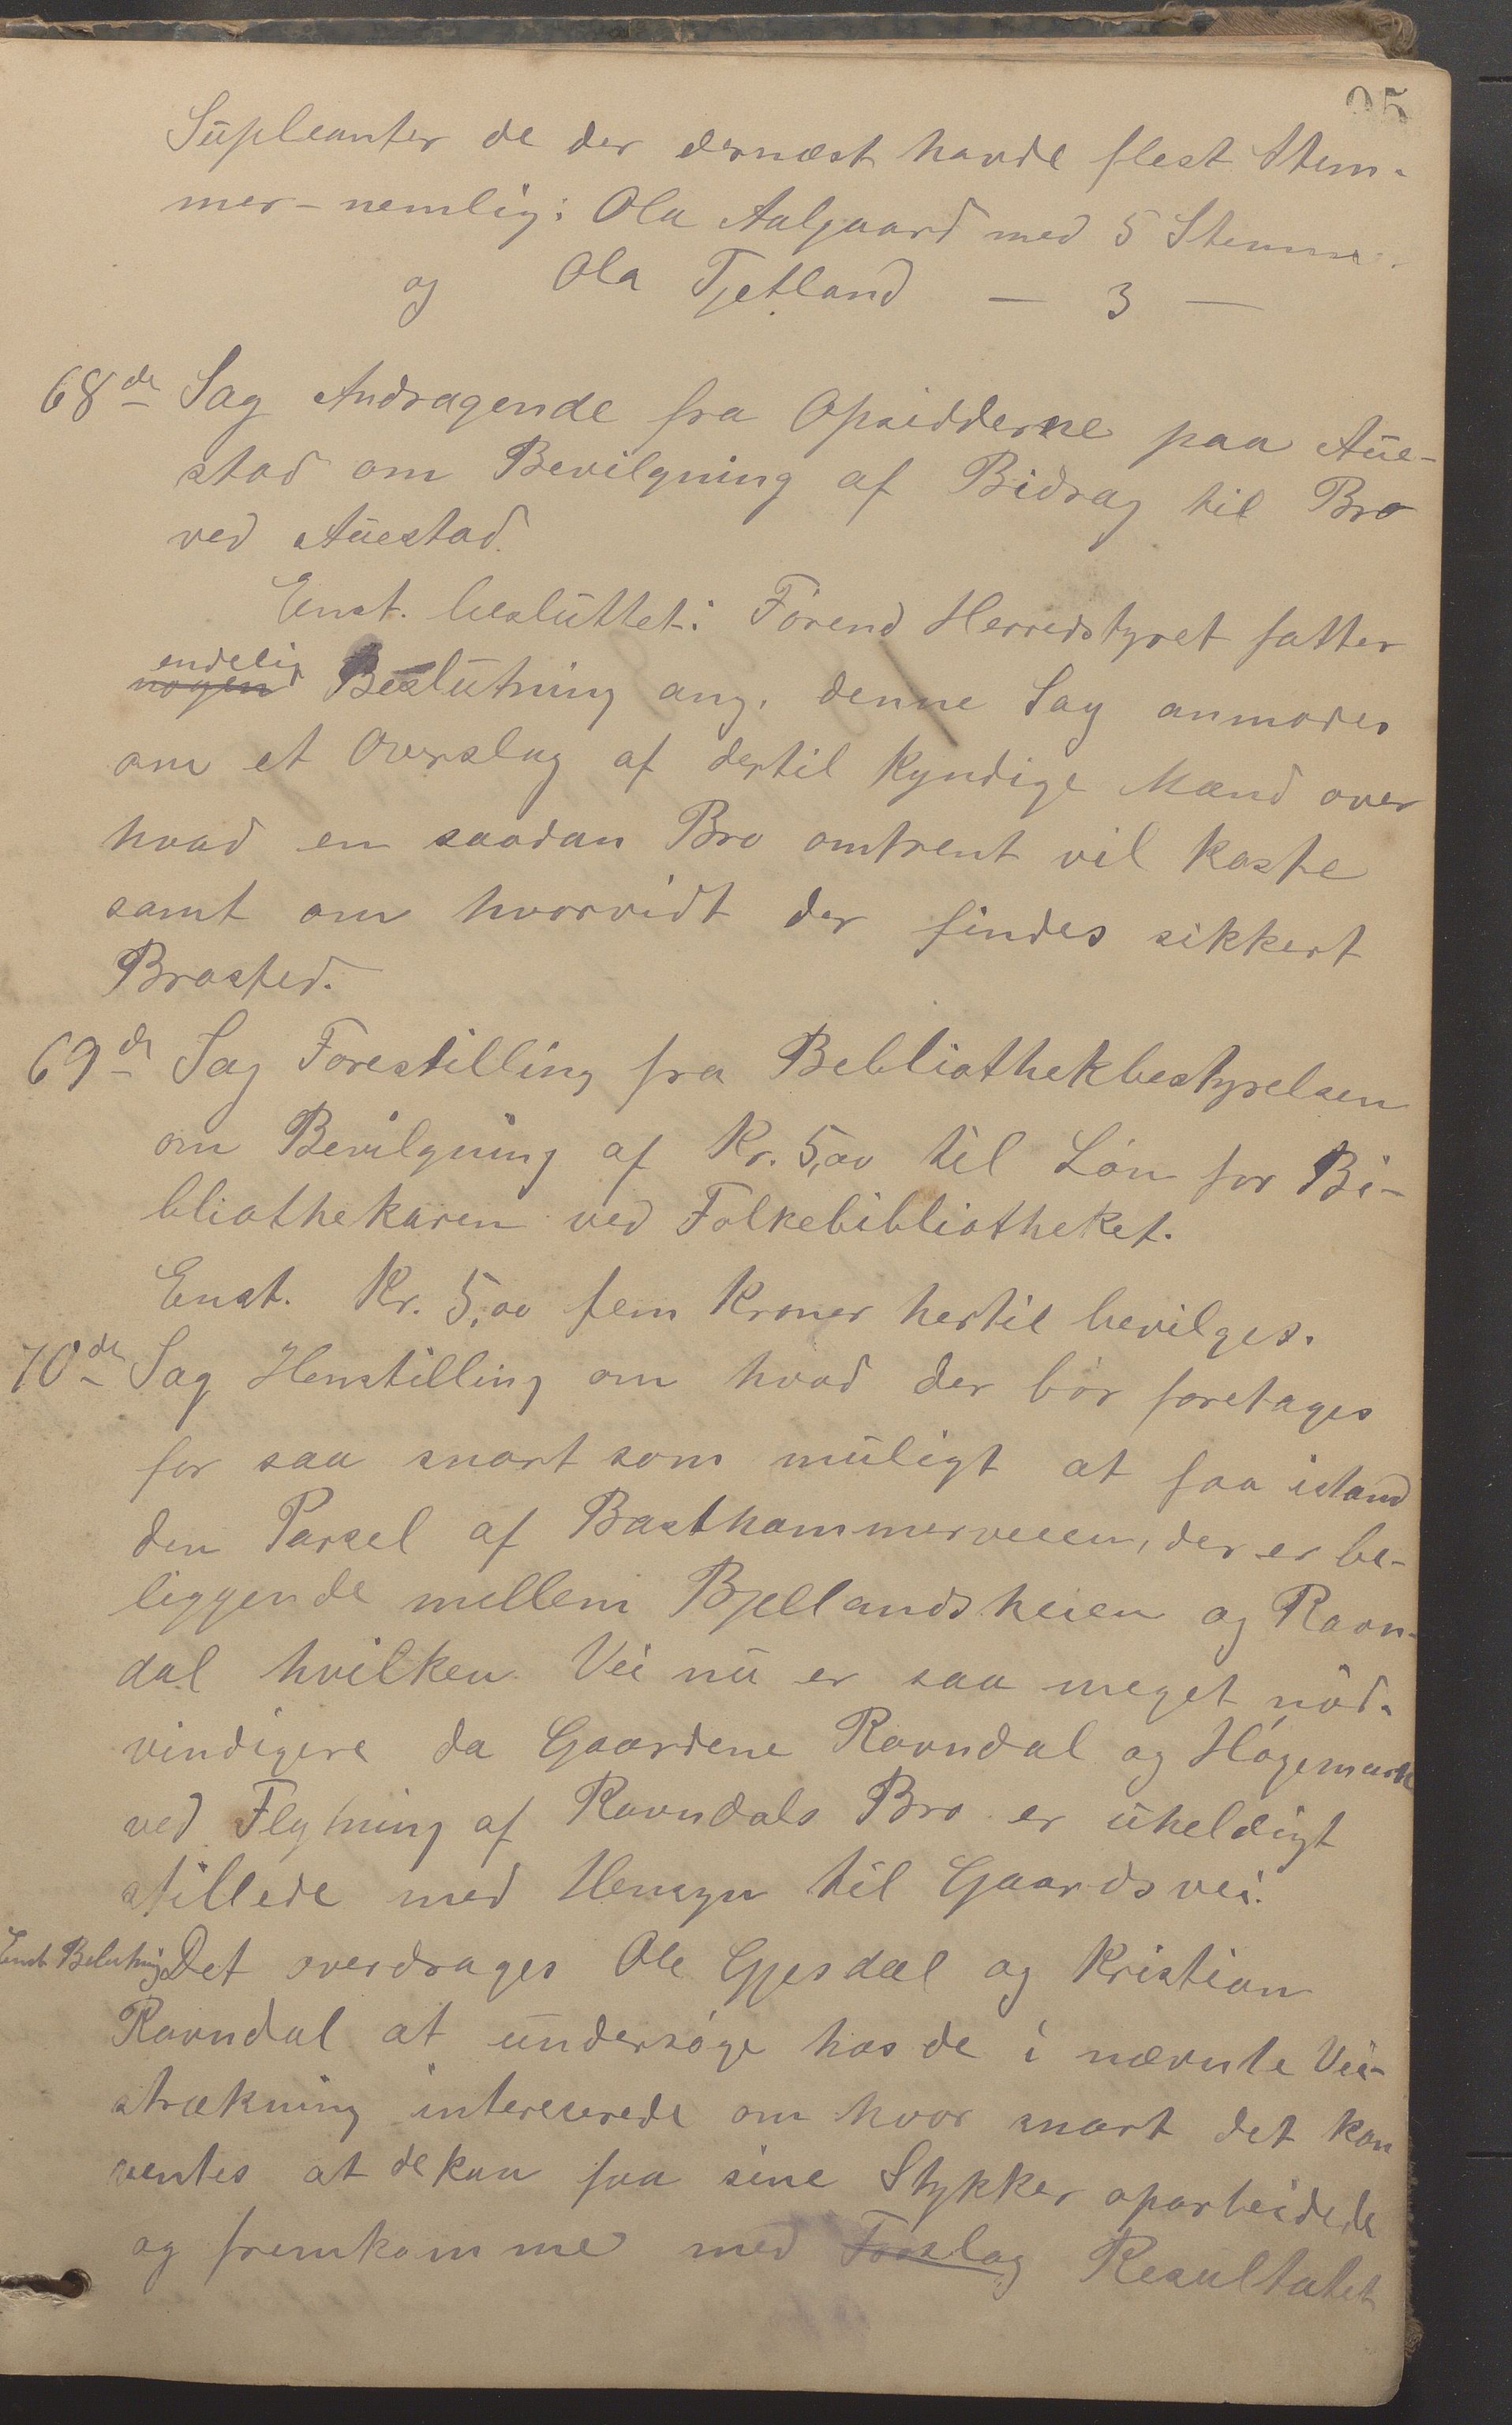 95
Supleanter de der dernæst havde flest Stem-
mer - nemlig: Ola Aalgaard med 5 Stemmer.
og Ola Tjetland — 3 —
68de Sag Andragende fra Opsidderne paa Aue-
stad om Bevilgning af Bidrag til Bro
ved Auestad.
Enst. besluttet: Førend Herredstyret fatter
endelig
nogen Beslutning ang. denne Sag anmodes
om et Overslag af dertil kyndige Mænd over
hvad en saadan Bro omtrent vil koste
samt om hvorvidt der findes sikkert
Brosted.
69de Sag Forestilling fra Bebliothekbestyrelsen
om Bevilgning af Kr. 5,00 til Løn for Bi-
bliothekaren ved Folkebibliotheket.
Enst. Kr. 5,00 fem Kroner hertil bevilges.
70de Sag Henstilling om hvad der bør foretages
for saa snart som muligt at faa istand
den Parsel af Basthammerveien, der er be-
liggende mellem Bjellandsheien og Ravn-
dal hvilken Vei nu er saa meget nød-
vindigere da Gaardene Ravndal og Høgemark
ved Flytning af Ravndals Bro er uheldigt
stillede med Hensyn til Gaardsvei.
Enst. Beslutning Det overdrages Ole Gjesdal og Kristian
Ravndal at undersøge hos de i nævnte Vei-
strækning intereserede om hvor snart det kan
ventes at de kan faa sine Stykker oparbeidede
og fremkomme med Forslag Resultatet